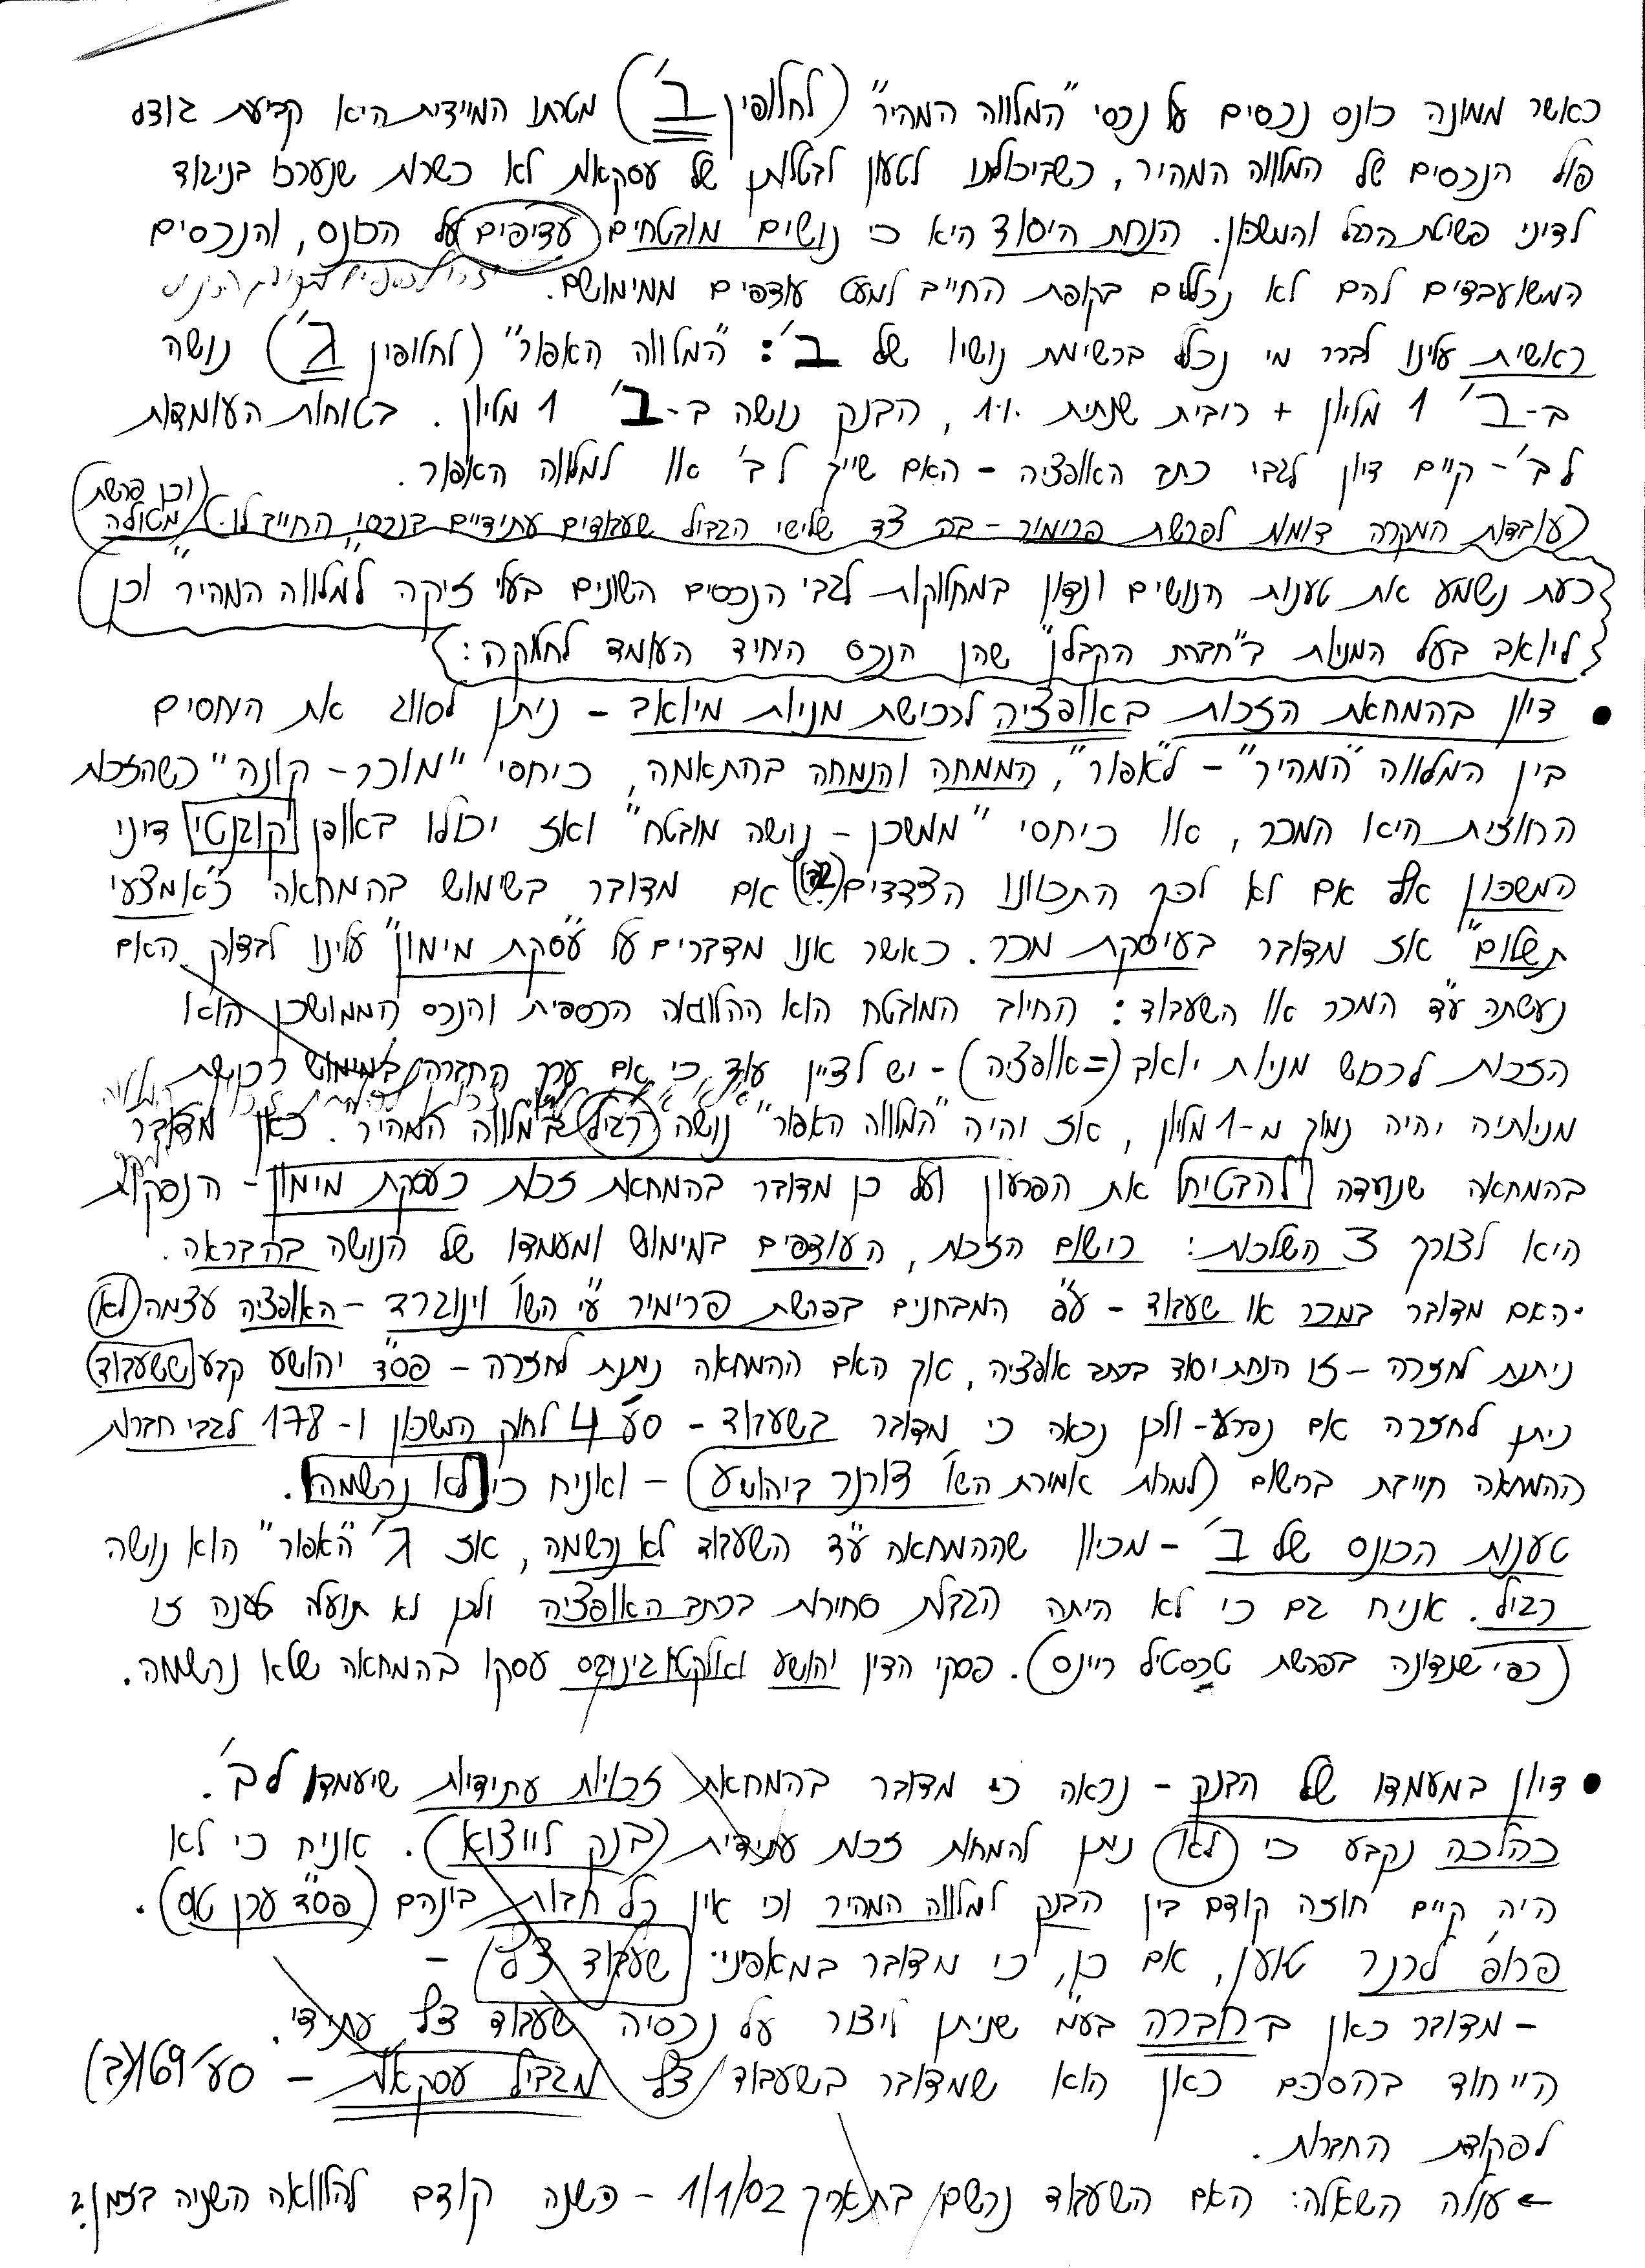 כאשר ממונה כונס נכסים על נכסי "המלווה המהיר" (לחלופין ב') מטרתו המיידית היא קביעת גודל
פול הנכסים של המלווה המהיר, כשביכולתו לטעון לבטלותן של עסקאות לא כשרות שנערכו בניגוד
לדיני פשיטת הרגל והמשכון. הנחת היסוד היא כי נושים מובטחים עדיפים על הכונס, והנכסים
המשועבדים להם לא נכללים בקופת החייב למעט עודפים ממימושם.
ראשית עלינו לברר מי נכלל ברשימת נושיו של ב': "המלווה האפור" (לחלופין ג') נושה
ב-ב' 1 מליון + ריבית שנתית 1%, הבנק נושה ב-ב' 1 מליון. בטוחות העומדות
לב' - קיים דיון לגבי כתב האופציה - האם שייך לב' או למלווה האפור.
(עובדות המקרה דומות לפרשת פרימיר - בה צד שלישי הגביל שעבודים עתידיים בנכסי החייב לו.) (וכן פרשת מטולה)
כעת נשמע את טענות הנושים ונדון במחלוקות לגבי הנכסים השונים בעלי זיקה ל"מלווה המהיר" וכן
ליואב בעל המניות ב"חברת הקבלן" שהן הנכס היחיד העומד לחלוקה:
• דיון בהמחאת הזכות באופציה לרכישת מניות מיואב - ניתן לסווג את היחסים
בין המלווה "המהיר" - ל"אפור", הממחה והנמחה בהתאמה, כיחסי "מוכר - קונה" כשהזכות
החוזית היא המכר, או כיחסי "ממשכן - נושה מובטח" ואז יכולו באופן קוגנטי דיני
המשכון אף אם לא לכך התכוונו הצדדים אם מדובר בשימוש בהמחאה כ"אמצעי
תשלום" אז מדובר בעיסקת מכר. כאשר אנו מדברים על "עסקת מימון" עלינו לבדוק האם
נעשתה ע"ד המכר או השעבוד: החיוב המובטח הוא ההלוואה הכספית והנכס הממושכן הוא
הזכות לרכוש מניות יואב (= אופציה) - יש לציין עוד כי אם ערך החברה במימוש רכישת
מניותיה יהיה נמוך מ-1 מליון, אז יהיה "המלווה האפור" נושה רגיל ב"מלווה המהיר". כאן מדובר
בהמחאה שנועדה להבטיח את הפרעון ועל כן מדובר בהמחאת זכות כעסקת מימון - הנפקות
היא לצורך 3 השלכות: רישום הזכות, העודפים במימוש ומעמדו של הנושה בהבראה.
• האם מדובר במכר או שעבוד - ע"פ המבחנים בפרשת פרימיר ע"י השו' וינוגרד - האופציה עצמה לא
ניתנת לחזרה - זו הנחת יסוד בכתב אופציה, אך האם ההמחאה ניתנת לחזרה - פס"ד יהושע קבע ששעבוד
ניתן לחזרה אם נפרע - ולכן נראה כי מדובר בשעבוד - סע' 4 לחוק המשכון ו-178 לגבי חברות
ההמחאה חייבת ברישום (למרות אמירת השו' דורנר ביהושע) - ואניח כי לא נרשמה.
טענות הכונס של ב' - מכיוון שההמחאה ע"ד השעבוד לא נרשמה, אז ג' "האפור" הוא נושה
רגיל. אניח גם כי לא היתה הגבלת סחירות בכתב האופציה ולכן לא תועלה טענה זו
(כפי שנדונה בפרשת טקסטיל ריינס). פסקי הדין יהושע ואלקטוגינוקס עסקו בהמחאה שלא נרשמה.
• דיון במעמדו של הבנק - נראה כי מדובר בהמחאת זכויות עתידיות שיעמדו לב'.
כהלכה נקבע כי לא ניתן להמחות זכות עתידית (בנק לוייצוא). אניח כי לא
היה קיים חוזה קודם בין הבנק למלווה המהיר וכי אין כל חבות בינהם (פס"ד ערן טוס).
פרופ' לרנר טוען, אם כן, כי מדובר במאפייני שעבוד צף -
- מדובר כאן בחברה בע"מ שניתן ליצור על נכסיה שעבוד צף עתידי.
הייחוד בהסכם כאן הוא שמדובר בשעבוד צף מגביל עסקאות - סע' 169(ב)
לפקודת החברות.
← עולה השאלה: האם השעבוד נרשם בתאריך 1/1/02 - כשנה קודם להלוואה השניה בזמן?